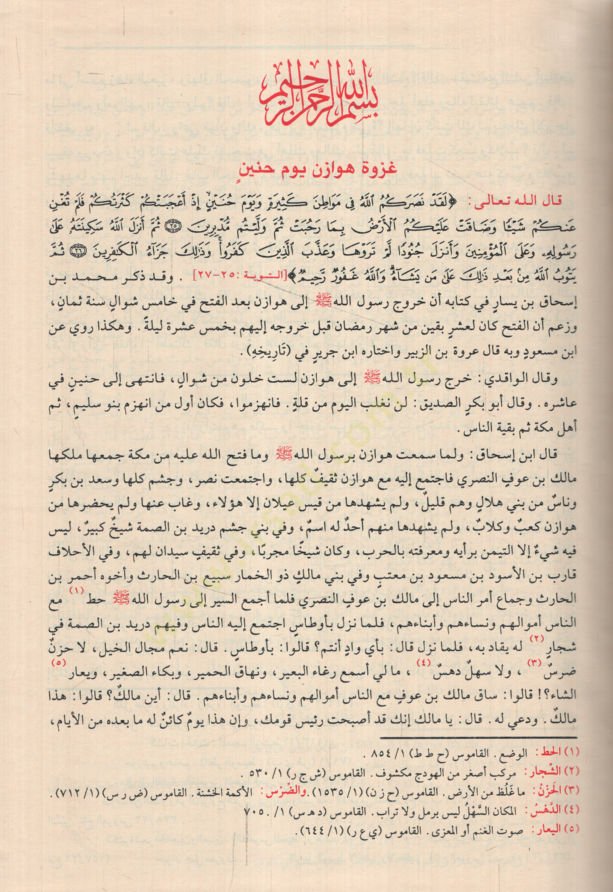 بسم الله الرحمن الرحيم
غزوة هوازن يوم حنينٍ
قال الله تعالى: ﴿لَقَدْ نَصَرَكُمُ اللَّهُ فِي مَوَاطِنَ كَثِيرَةٍ وَيَوْمَ حُنَيْنٍ إِذْ أَعْجَبَتْكُمْ كَثْرَتُكُمْ فَلَمْ تُغْنِ
عَنكُمْ شَيْئًا وَضَاقَتْ عَلَيْكُمُ الْأَرْضُ بِمَا رَحُبَتْ ثُمَّ وَلَّيْتُم مُّدْبِرِينَ ۝٢٥ ثُمَّ أَنزَلَ اللَّهُ سَكِينَتَهُ عَلَىٰ
رَسُولِهِ وَعَلَى الْمُؤْمِنِينَ وَأَنزَلَ جُنُودًا لَّمْ تَرَوْهَا وَعَذَّبَ الَّذِينَ كَفَرُوا وَذَٰلِكَ جَزَاءُ الْكَافِرِينَ ۝٢٦ ثُمَّ
يَتُوبُ اللَّهُ مِن بَعْدِ ذَٰلِكَ عَلَىٰ مَن يَشَاءُ وَاللَّهُ غَفُورٌ رَّحِيمٌ﴾ [التوبة: ٢٥-٢٧]. وقد ذكر محمد بن
إسحاق بن يسارٍ في كتابه أن خروج رسول الله ﷺ إلى هوازن بعد الفتح في خامس شوالٍ سنة ثمان،
وزعم أن الفتح كان لعشرٍ بقين من شهر رمضان قبل خروجه إليهم بخمس عشرة ليلةً. وهكذا روي عن
ابن مسعودٍ وبه قال عروة بن الزبير واختاره ابن جريرٍ في (تَارِيخِهِ).
وقال الواقدي: خرج رسول الله ﷺ إلى هوازن لست خلون من شوالٍ، فانتهى إلى حنينٍ في
عاشره. وقال أبو بكرٍ الصديق: لن نغلب اليوم من قلةٍ. فانهزموا، فكان أول من انهزم بنو سليمٍ، ثم
أهل مكة ثم بقية الناس.
قال ابن إسحاق: ولما سمعت هوازن برسول الله ﷺ وما فتح الله عليه من مكة جمعها ملكها
مالك بن عوفٍ النصري فاجتمع إليه مع هوازن ثقيفٌ كلها، واجتمعت نصر، وجشم كلها وسعد بن بكرٍ
وناسٌ من بني هلالٍ وهم قليلٌ، ولم يشهدها من قيس عيلان إلا هؤلاء، وغاب عنها ولم يحضرها من
هوازن كعبٌ وكلابٌ، ولم يشهدها منهم أحدٌ له اسمٌ، وفي بني جشم دريد بن الصمة شيخٌ كبيرٌ، ليس
فيه شيءٌ إلا التيمن برأيه ومعرفته بالحرب، وكان شيخًا مجربًا، وفي ثقيفٍ سيدان لهم، وفي الأحلاف
قارب بن الأسود بن مسعود بن معتبٍ وفي بني مالكٍ ذو الخمار سبيع بن الحارث وأخوه أحمر بن
الحارث وجماع أمر الناس إلى مالك بن عوفٍ النصري فلما أجمع السير إلى رسول الله ﷺ حط(١) مع
الناس أموالهم ونساءهم وأبناءهم، فلما نزل بأوطاسٍ اجتمع إليه الناس وفيهم دريد بن الصمة في
شجارٍ(٢) له يقاد به، فلما نزل قال: بأي وادٍ أنتم؟ قالوا: بأوطاسٍ. قال: نعم مجال الخيل، لا حزنٌ
ضرسٌ(٣)، ولا سهلٌ دهسٌ(٤)، ما لي أسمع رغاء البعير، ونهاق الحمير، وبكاء الصغير، ويعار(٥)
الشاء؟! قالوا: ساق مالك بن عوفٍ مع الناس أموالهم ونساءهم وأبناءهم. قال: أين مالكٌ؟ قالوا: هذا
مالكٌ. ودعي له. قال: يا مالك إنك قد أصبحت رئيس قومك، وإن هذا يومٌ كائنٌ له ما بعده من الأيام،
(١) الحط: الوضع. القاموس (ح ط ط) ١/ ٨٥٤.
(٢) الشّجار: مركب أصغر من الهودج مكشوف. القاموس (ش ج ر) ١/ ٥٣٠.
(٣) الحَزْنُ: ما غَلُظ من الأرض. القاموس (ح ز ن) (١/ ١٥٣٥). والضّرْس: الأكمة الخشنة. القاموس (ض ر س) (١/ ٧١٢).
(٤) الدَّهْسُ: المكان السَّهْلُ ليس برمل ولا تراب. القاموس (د هـ س) ١/ ٧٠٥.
(٥) اليعار: صوت الغنم أو المعزى. القاموس (ي ع ر) (١/ ٦٤٤).